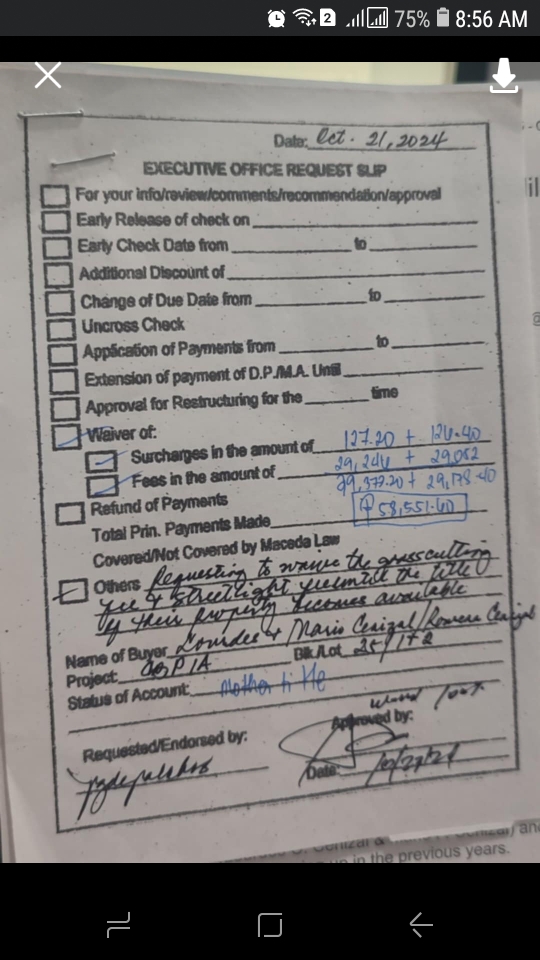 2 75% 8:56 AM
Date: Oct. 21, 2024
EXECUTIVE OFFICE REQUEST SLIP
For your info/review/comments/recommendation/approval
Early Release of check on
Early Check Date from to
Additional Discount of
Change of Due Date from to
Uncross Check
Application of Payments from to
Extension of payment of D.P./M.A. Until
Approval for Restructuring for the time
Waiver of:
Surcharges in the amount of 127.20 + 126.40
Fees in the amount of 29,246 + 29,052
29,373.20 + 29,178.40
Refund of Payments
Total Prin. Payments Made ₱58,551.60
Covered/Not Covered by Maceda Law
Others Requesting to waive the grasscutting
fee & streetlight until the title
of their property becomes available
Name of Buyer Lourdes & Mario Cenizal/Romera Cenizal
Project: Blk/Lot 25/1&2
Status of Account: Mother title
Requested/Endorsed by:
Approved by:
Date:
Cenizal) and
in the previous years.